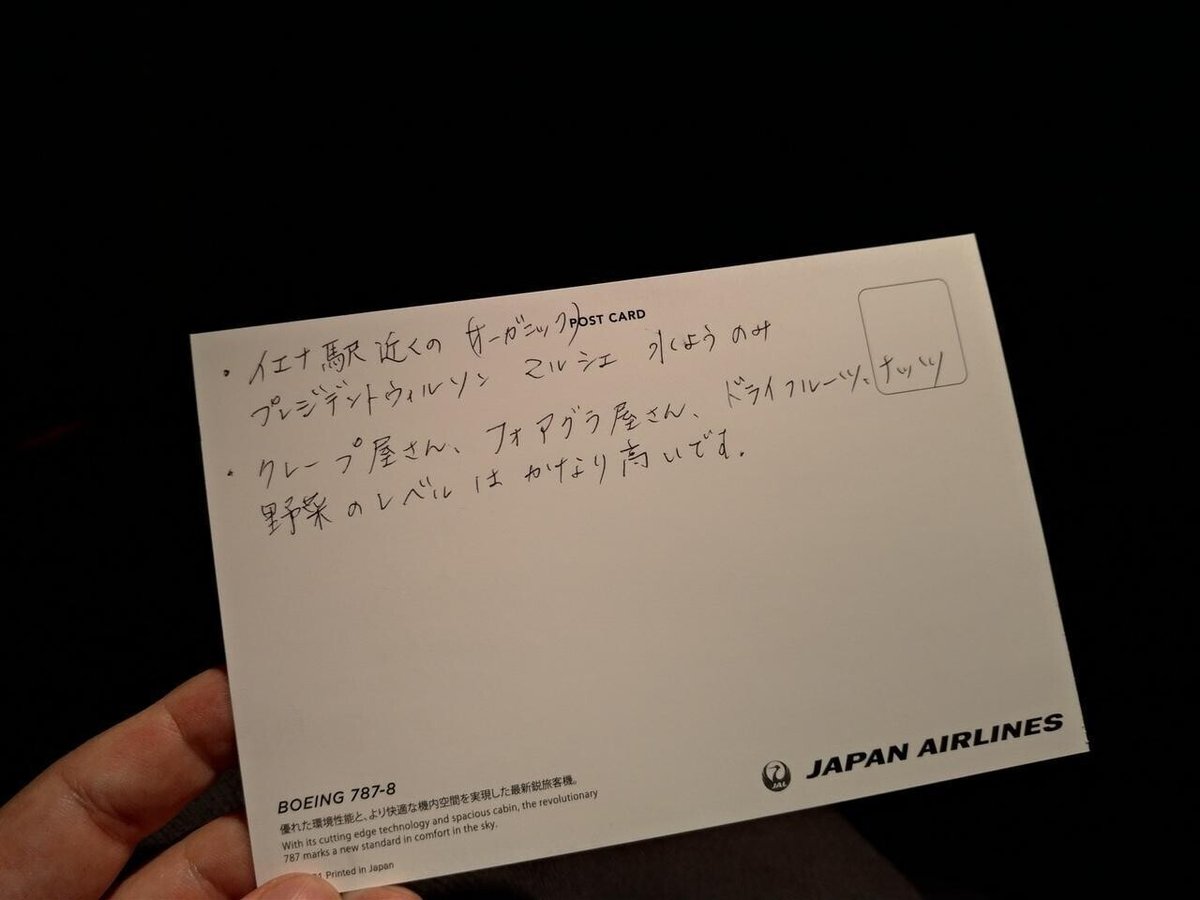 POST CARD
・イエナ駅近くの(オーガニック)
プレジデントウィルソン マルシェ 水ようのみ
・クレープ屋さん、フォアグラ屋さん、ドライフルーツ、ナッツ
野菜のレベルはかなり高いです。
BOEING 787-8
優れた環境性能と、より快適な機内空間を実現した最新鋭旅客機。
With its cutting edge technology and spacious cabin, the revolutionary
787 marks a new standard in comfort in the sky.
Printed in Japan
JAL
JAPAN AIRLINES